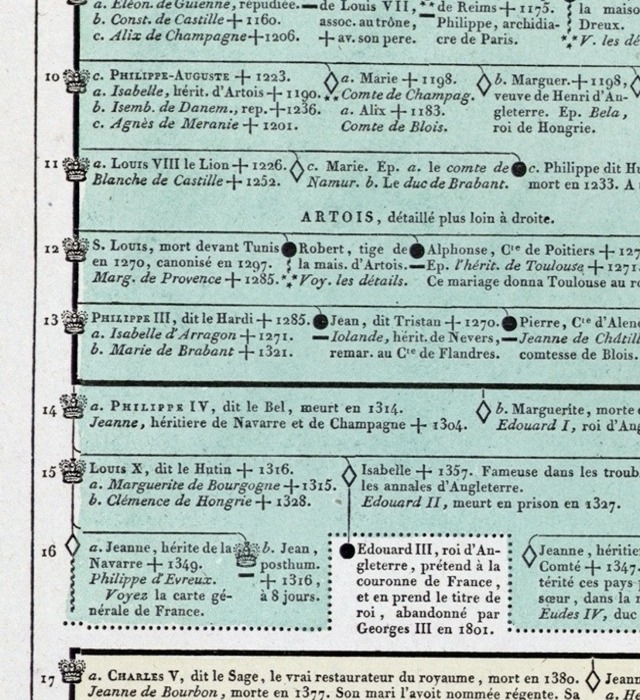 a. Eléon. de Guienne, répudiée.
de Louis VII,
de Reims + 1175.
la maiso
b. Const. de Castille + 1160.
assoc. au trône,
Philippe, archidia-
Dreux.
c. Alix de Champagne + 1206.
+ av. son pere.
cre de Paris.
V. les dé
10
c. PHILIPPE-AUGUSTE + 1223.
a. Isabelle, hérit. d'Artois + 1190.
b. Isemb. de Danem., rep. + 1236.
c. Agnès de Meranie + 1201.
a. Marie + 1198.
Comte de Champag.
a. Alix + 1183.
Comte de Blois.
b. Marguer. + 1198,
veuve de Henri d'An-
gleterre. Ep. Bela,
roi de Hongrie.
11
a. Louis VIII le Lion + 1226.
Blanche de Castille + 1252.
c. Marie. Ep. a. le comte de
Namur. b. Le duc de Brabant.
c. Philippe dit Hu
mort en 1233. A
ARTOIS, détaillé plus loin à droite.
12
S. Louis, mort devant Tunis
en 1270, canonisé en 1297.
Marg. de Provence + 1285.
Robert, tige de
la mais. d'Artois.
Voy. les détails.
Alphonse, Cte de Poitiers + 127
Ep. l'hérit. de Toulouse + 1271.
Ce mariage donna Toulouse au ro
13
PHILIPPE III, dit le Hardi + 1285.
a. Isabelle d'Arragon + 1271.
b. Marie de Brabant + 1321.
Jean, dit Tristan + 1270.
Iolande, hérit. de Nevers,
remar. au Cte de Flandres.
Pierre, Cte d'Alen
Jeanne de Châtill
comtesse de Blois.
14
a. PHILIPPE IV, dit le Bel, meurt en 1314.
Jeanne, héritiere de Navarre et de Champagne + 1304.
b. Marguerite, morte e
Edouard I, roi d'Ang
15
Louis X, dit le Hutin + 1316.
a. Marguerite de Bourgogne + 1315.
b. Clémence de Hongrie + 1328.
Isabelle + 1357. Fameuse dans les troub
les annales d'Angleterre.
Edouard II, meurt en prison en 1327.
16
a. Jeanne, hérite de la
Navarre + 1349.
Philippe d'Evreux.
Voyez la carte gé-
nérale de France.
b. Jean,
posthum.
+ 1316,
à 8 jours.
Edouard III, roi d'An-
gleterre, prétend à la
couronne de France,
et en prend le titre de
roi, abandonné par
Georges III en 1801.
Jeanne, héritie
Comté + 1347.
térité ces pays
sœur, dans la m
Eudes IV, duc
17
a. CHARLES V, dit le Sage, le vrai restaurateur du royaume, mort en 1380.
Jeanne de Bourbon, morte en 1377. Son mari l'avoit nommée régente. Sa
Jean
a. He